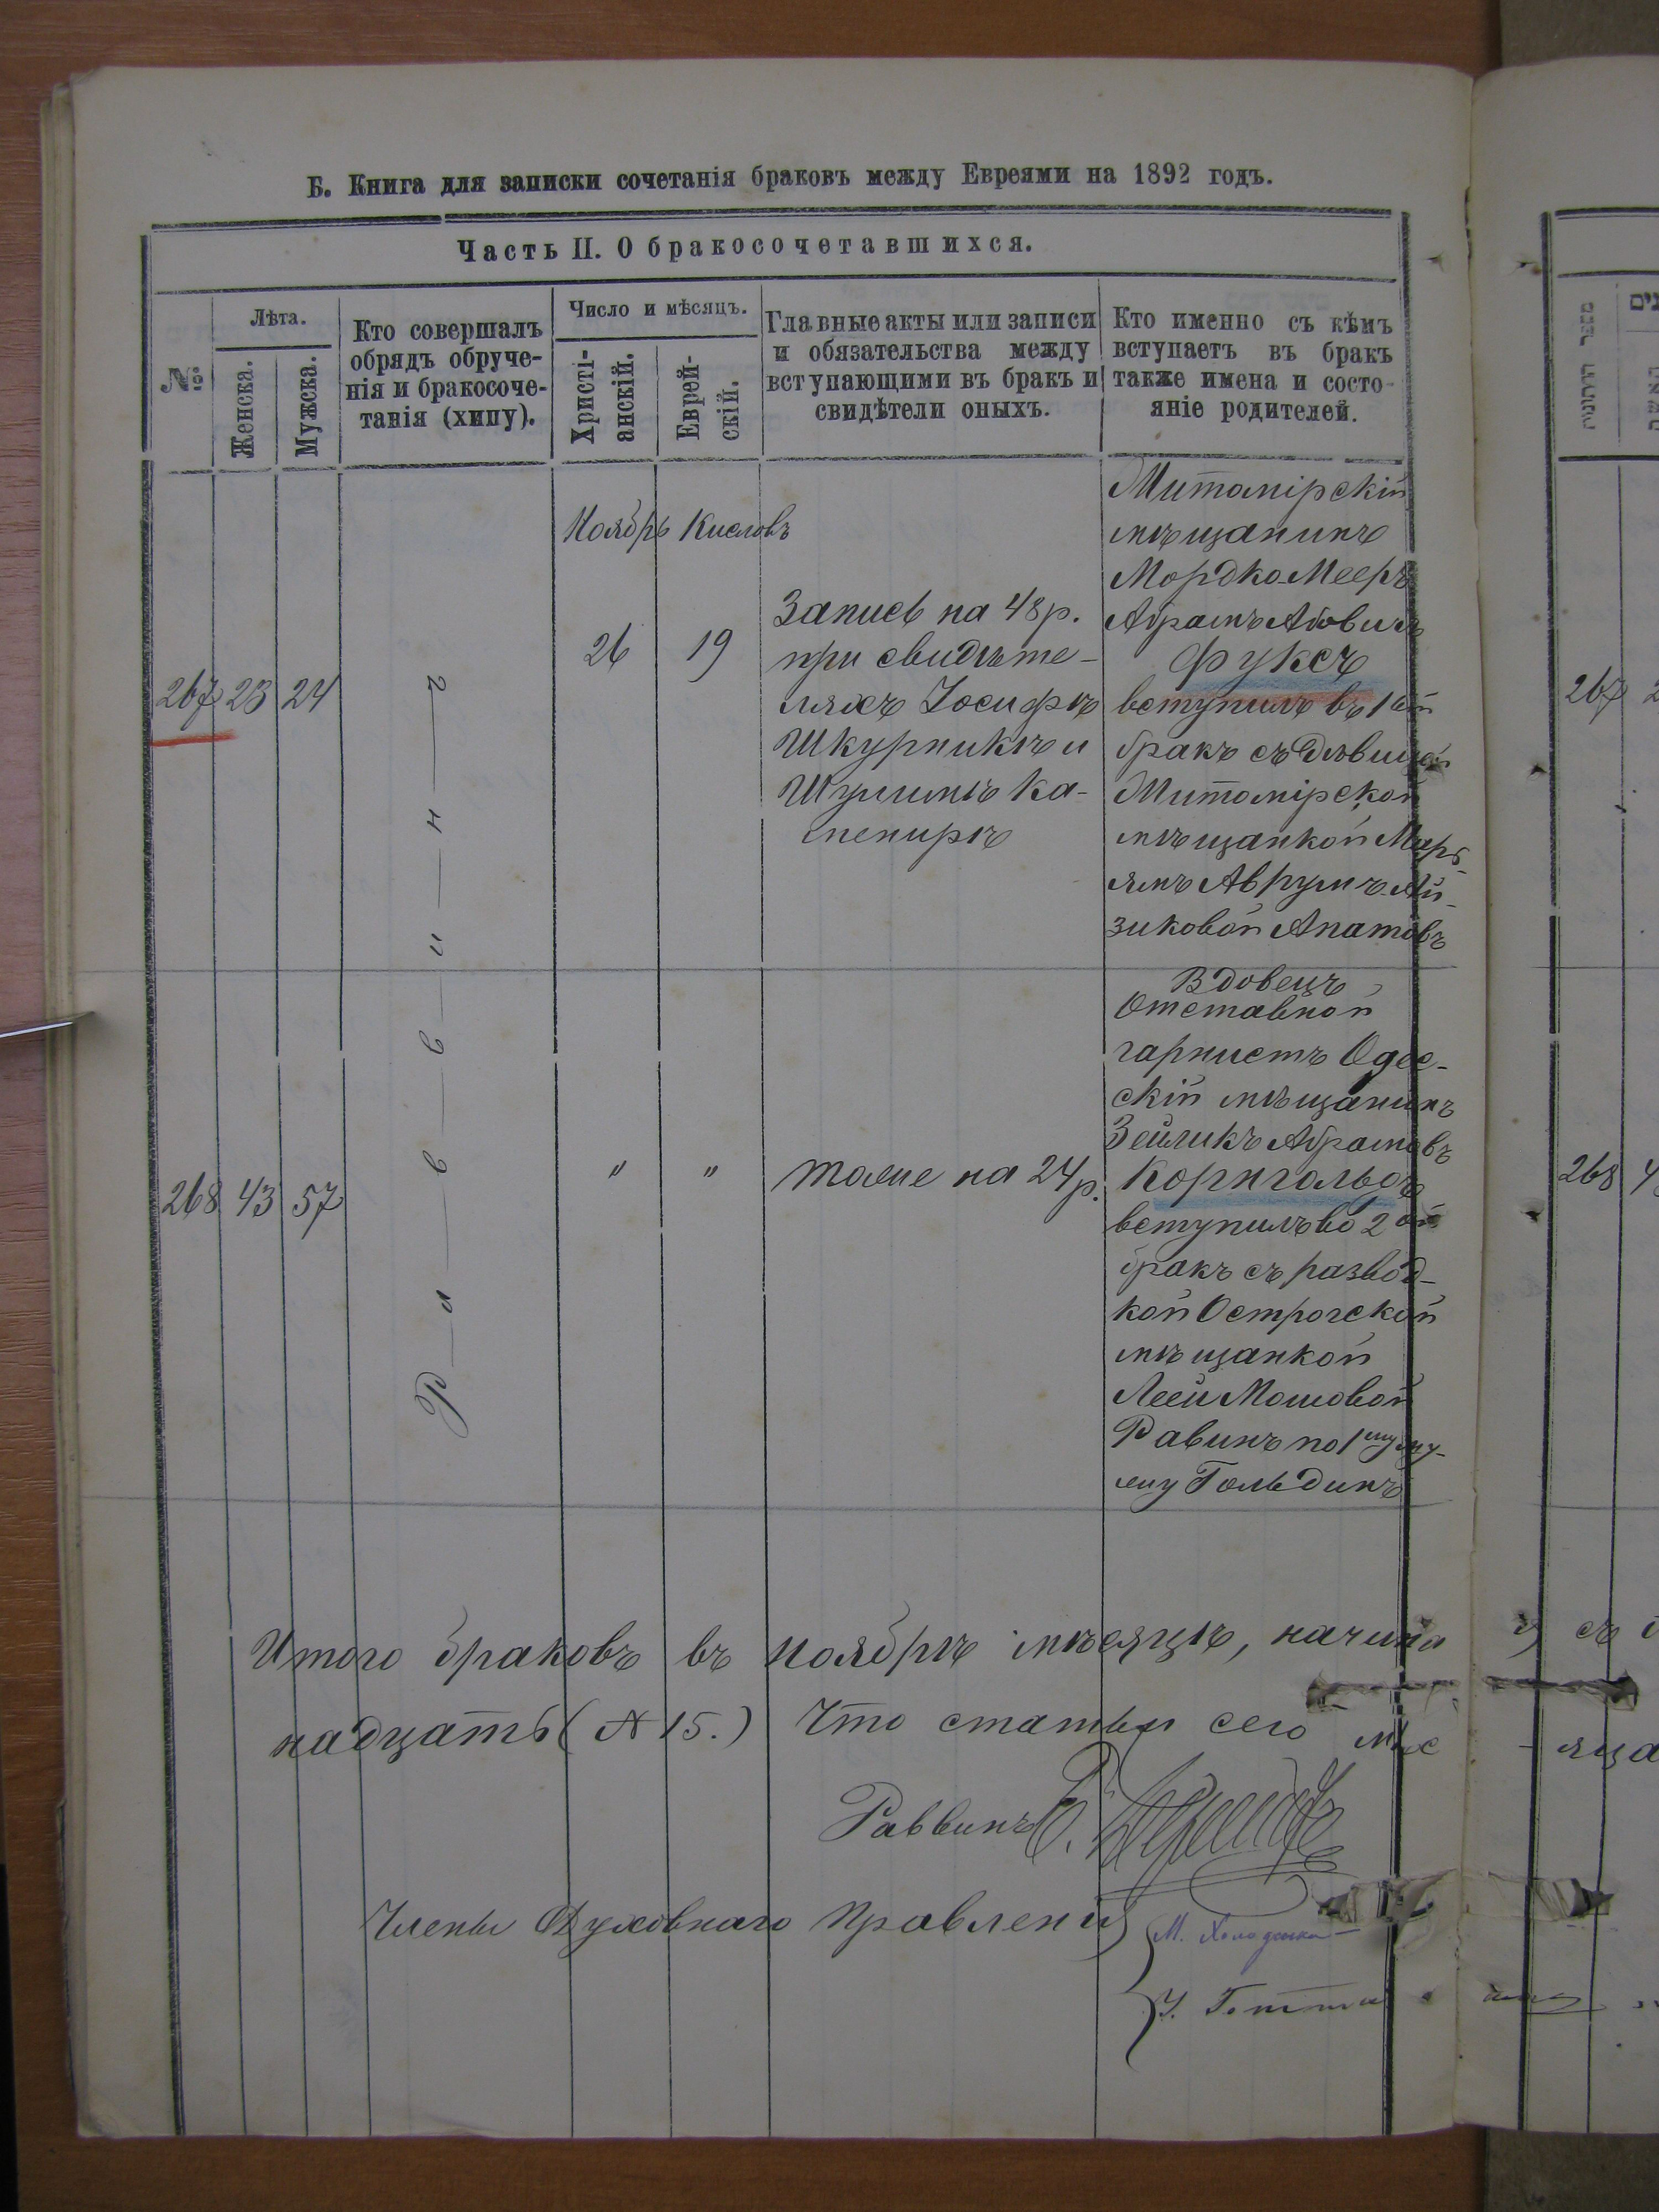 Б. Книга для записки сочетанія браковъ между Евреями на 1892 годъ.
Часть II. О бракосочетавшихся.
№
Лѣта.
Женска.
Мужска.
Кто совершалъ
обрядъ обруче-
нія и бракосоче-
танія (хипу).
Число и мѣсяцъ.
Христі-
анскій.
Еврей-
скій.
Главные акты или записи
и обязательства между
вступающими въ бракъ и
свидѣтели оныхъ.
Кто именно съ кѣмъ
вступаетъ въ бракъ
также имена и состо-
яніе родителей.
Ноябрь Кисловъ
267 23 24
26 19
Запись на 48 р.
при свидѣте-
ляхъ Іосифѣ
Шкурникѣ и
Шулимѣ Ка-
пенирѣ
Житомірскій
мѣщанинъ
Мордко-Мееръ
Абрамъ Абовичъ
Фуксъ
вступилъ въ 1ый
бракъ съ дѣвицей
Житомірской
мѣщанкой Марь
ямъ Аврумъ-Ай-
зиковой Апатовъ
Раввинъ
268 43 57
" "
тоже на 24 р.
Вдовецъ
Отставной
гарнистъ Одес-
скій мѣщанинъ
Зейликъ Абрамовъ
Корнгольдъ
вступилъ во 2ой
бракъ съ развод-
кой Острогской
мѣщанкой
Леей Мошовой
Равинъ по 1му му-
жу Гольдинъ
Итого браковъ въ ноябрѣ мѣсяцѣ, начиная съ
надцать (№ 15.) Что статьи сего мѣс - яца
Раввинъ
Члены Духовнаго Правленія
М.
267
268